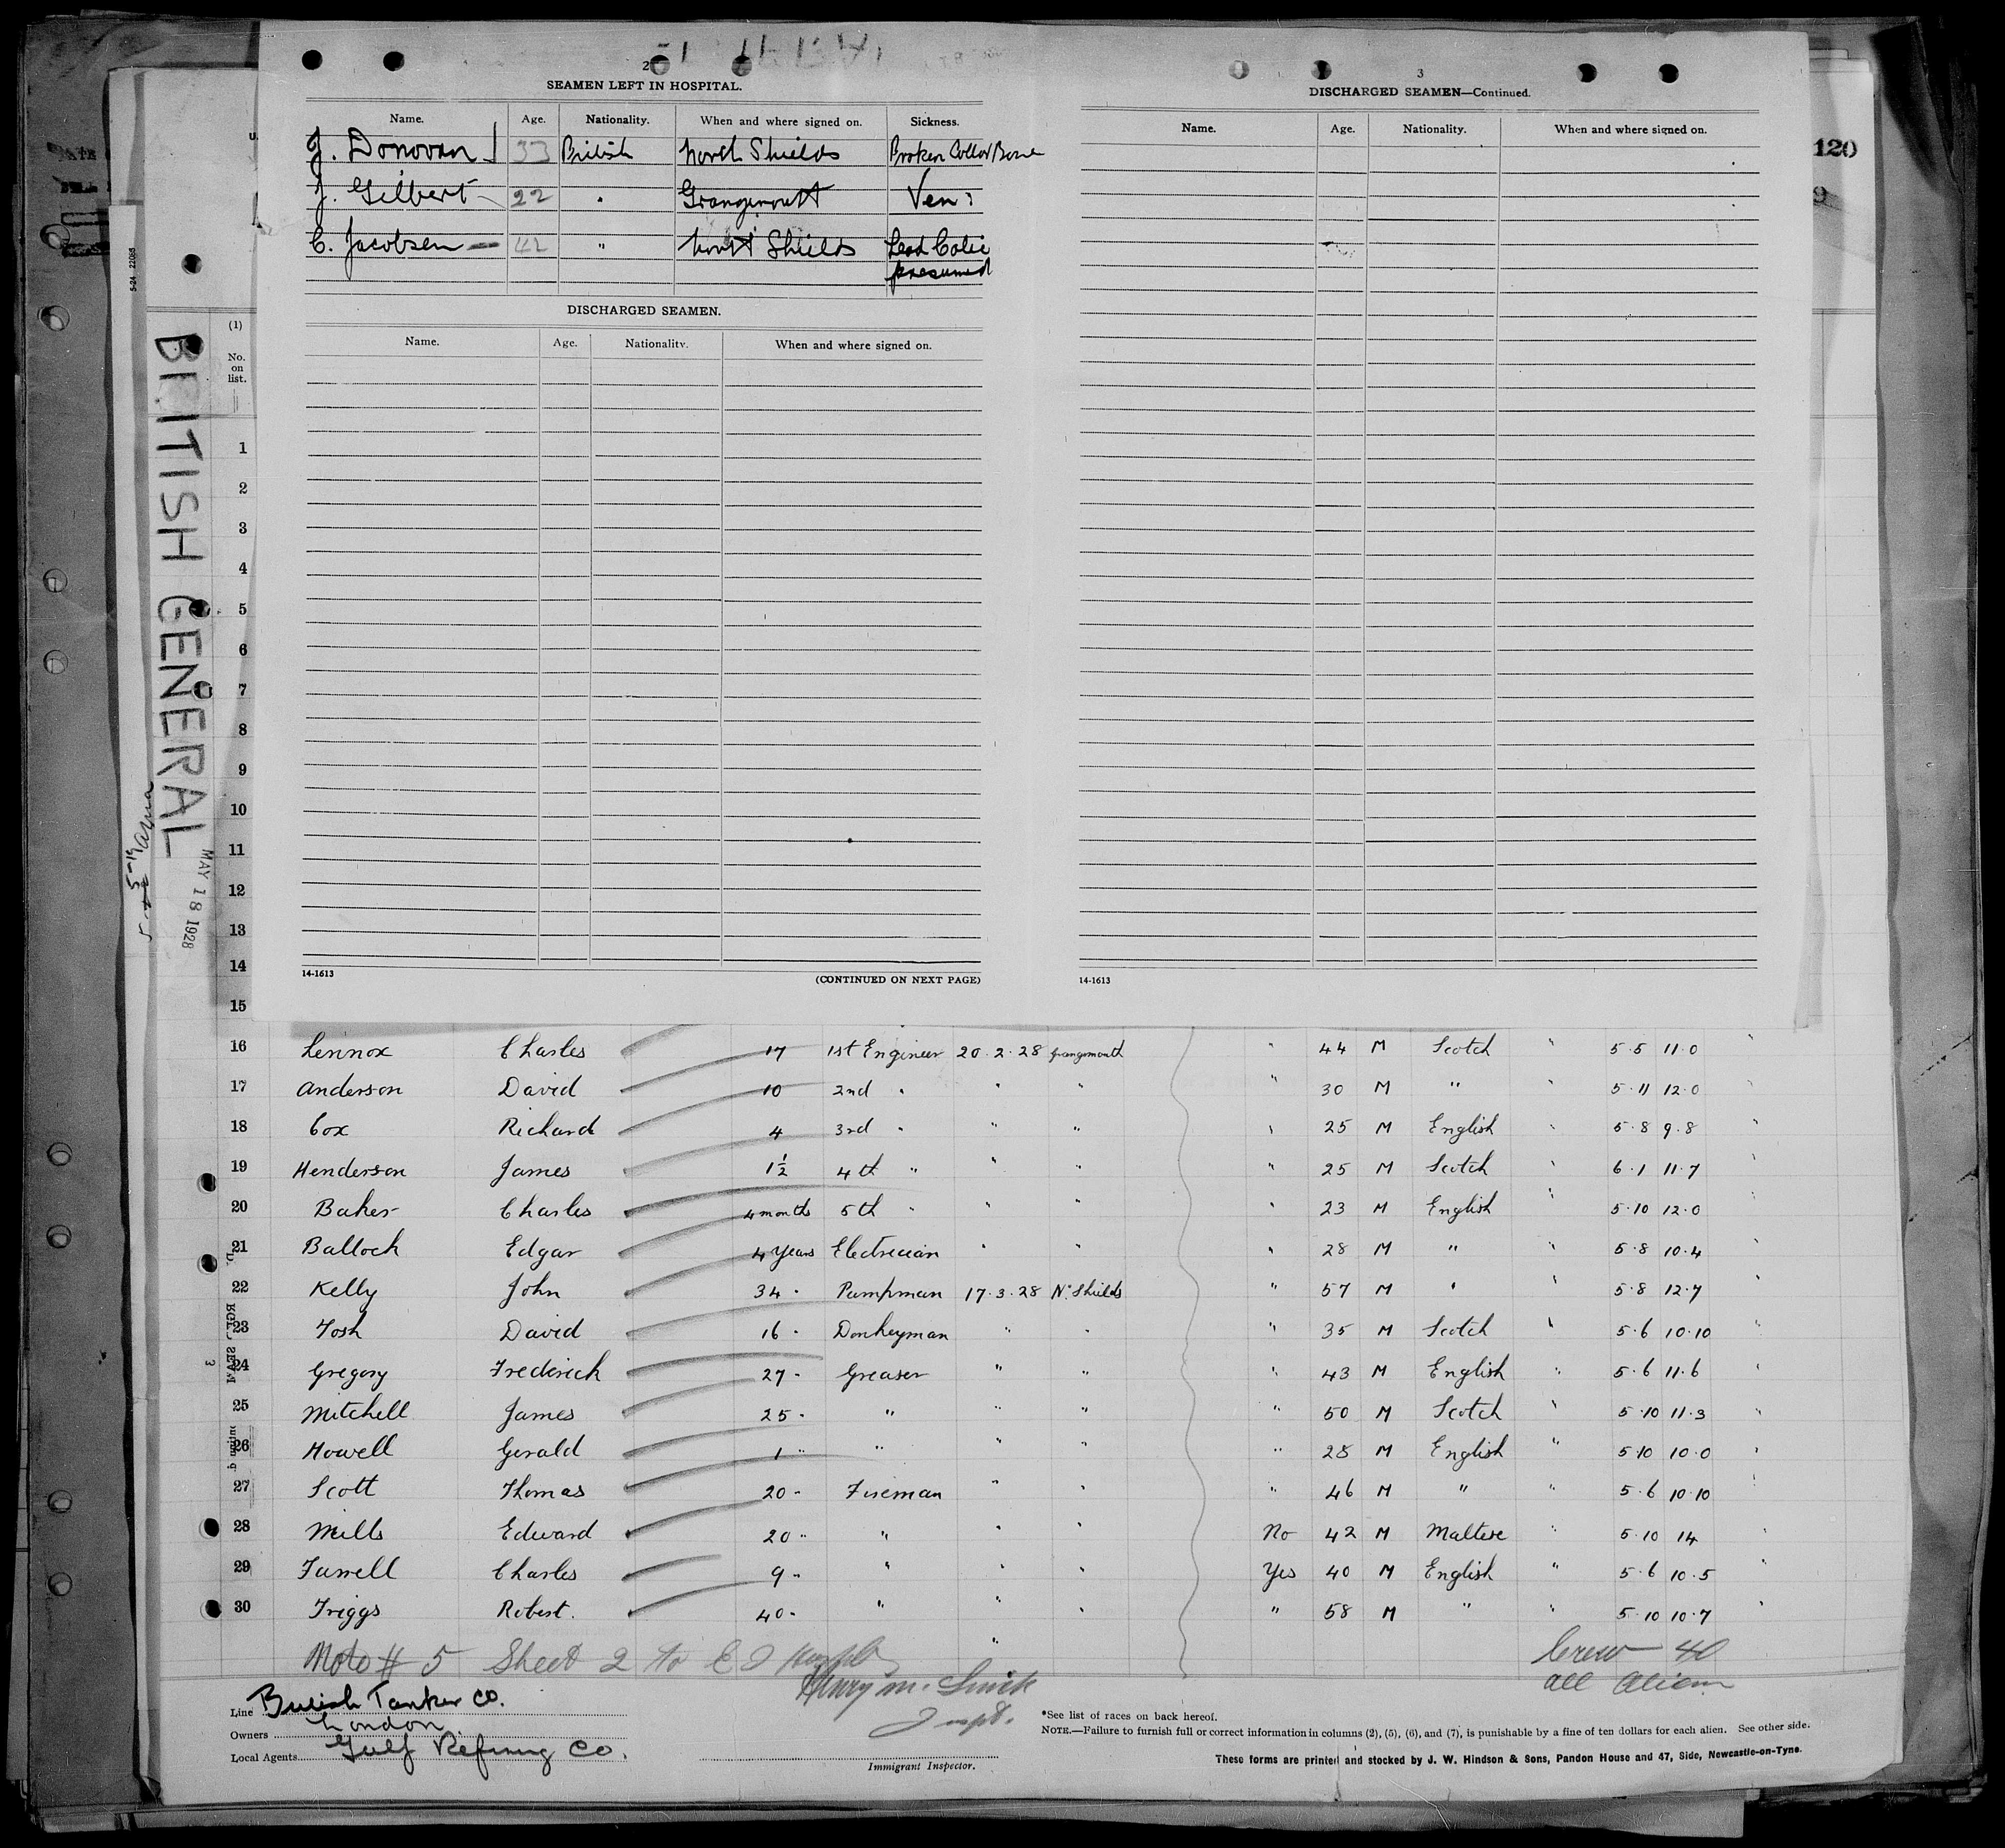 2
SEAMEN LEFT IN HOSPITAL.
Name. Age. Nationality. When and where signed on. Sickness.
J. Donovan 33 British North Shields Broken Collar Bone
J. Gilbert 22 " Grangemouth Ven:
C. Jacobsen 42 " North Shields Lead Colic
presumed
DISCHARGED SEAMEN.
Name. Age. Nationality. When and where signed on.
14-1613 (CONTINUED ON NEXT PAGE)
3
DISCHARGED SEAMEN—Continued.
Name. Age. Nationality. When and where signed on.
14-1613
120
5-24 22085
BRITISH GENERAL
MAY 18 1928
(1)
No.
on
list.
1
2
3
4
5
6
7
8
9
10
11
12
13
14
15
16 Lennox Charles 17 1st Engineer 20.2.28 Grangemouth " 44 M Scotch " 5.5 11.0 "
17 Anderson David 10 2nd " " " " 30 M " " 5.11 12.0 "
18 Cox Richard 4 3rd " " " " 25 M English " 5.8 9.8 "
19 Henderson James 1½ 4th " " " " 25 M Scotch " 6.1 11.7 "
20 Baker Charles 4 months 5th " " " " 23 M English " 5.10 12.0 "
21 Balloch Edgar 4 years Electrician " " " 28 M " " 5.8 10.4 "
22 Kelly John 34 " Pumpman 17.3.28 N. Shields " 57 M " " 5.8 12.7 "
23 Tosh David 16 " Donkeyman " " " 35 M Scotch " 5.6 10.10 "
24 Gregory Frederick 27 " Greaser " " " 43 M English " 5.6 11.6 "
25 Mitchell James 25 " " " " " 50 M Scotch " 5.10 11.3 "
26 Howell Gerald 1 " " " " " 28 M English " 5.10 10.0 "
27 Scott Thomas 20 " Fireman " " " 46 M " " 5.6 10.10 "
28 Mills Edward 20 " " " " No 42 M Maltese " 5.10 14 "
29 Farrell Charles 9 " " " " Yes 40 M English " 5.6 10.5 "
30 Triggs Robert. 40 " " " " " 58 M " " 5.10 10.7 "
Note # 5 Sheet 2 to
Crew 40
all Aliens
Henry M.
Inspt.
Line British Tanker Co.
Owners London
Local Agents Gulf Refining Co.
Immigrant Inspector.
*See list of races on back hereof.
NOTE.—Failure to furnish full or correct information in columns (2), (5), (6), and (7), is punishable by a fine of ten dollars for each alien. See other side.
These forms are printed and stocked by J. W. Hindson & Sons, Pandon House and 47, Side, Newcastle-on-Tyne.